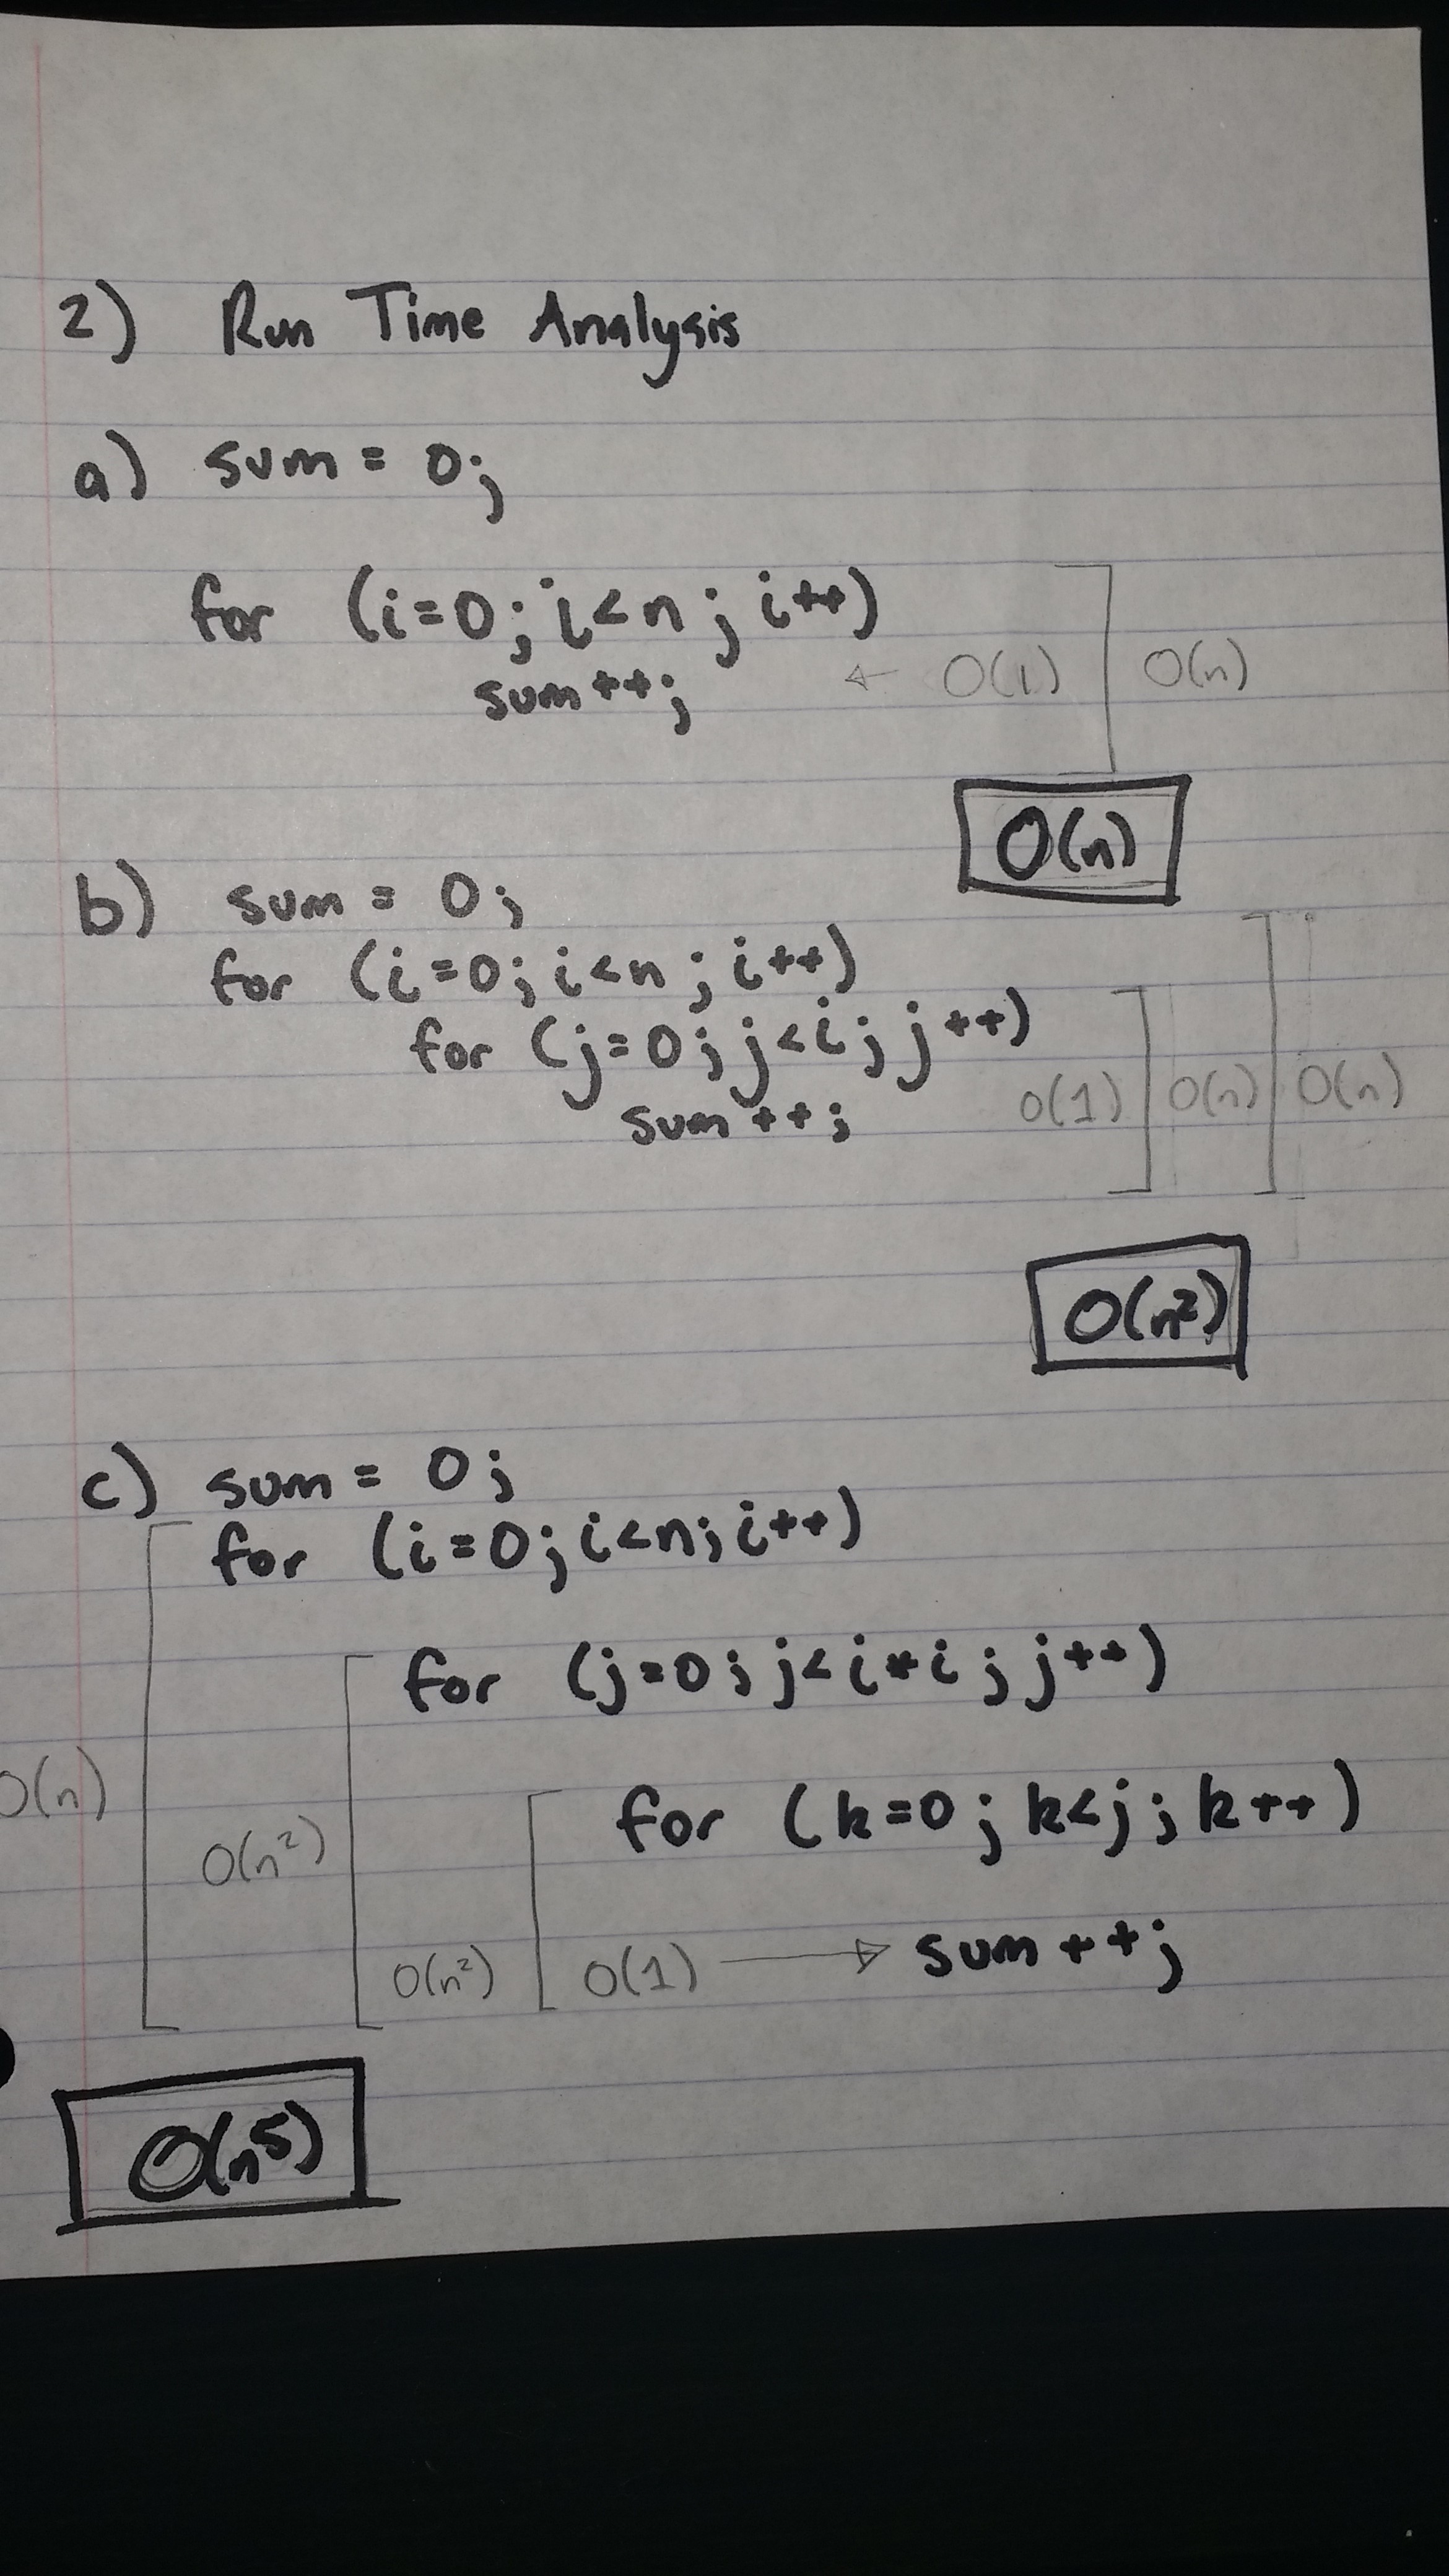 2) Run Time Analysis
a) sum = 0;
for (i=0; i<n; i++)
sum++; ← O(1) O(n)
O(n)
b) sum = 0;
for (i=0; i<n; i++)
for (j=0; j<i; j++)
sum++; O(1) O(n) O(n)
O(n²)
c) sum = 0;
for (i=0; i<n; i++)
for (j=0; j<i*i; j++)
for (k=0; k<j; k++)
O(n) O(n²) O(n²) O(1) → sum++;
O(n⁵)